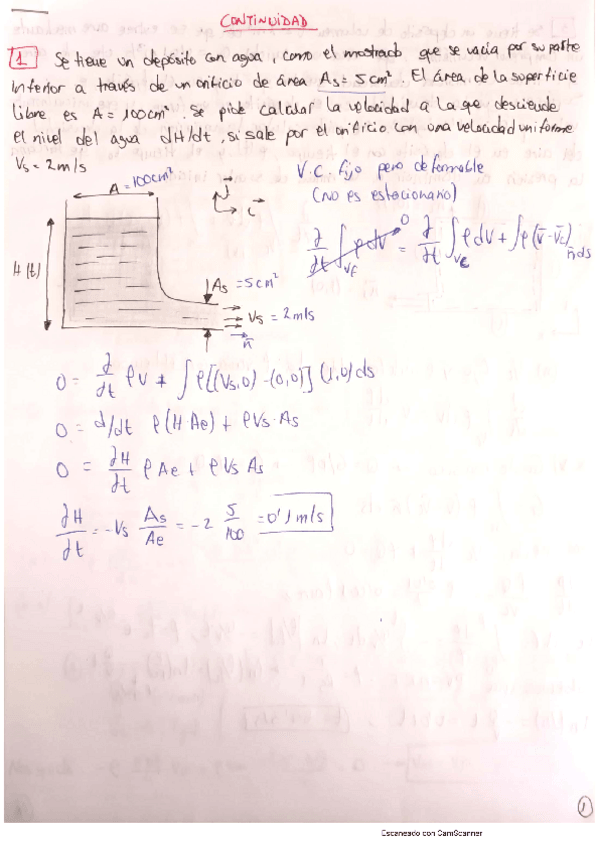 CONTINUIDAD
1 Se tiene un depósito con agua, como el mostrado que se vacía por su parte
inferior a través de un orificio de área As = 5 cm² El área de la superficie
libre es A = 100cm². Se pide calcular la velocidad a la que desciende
el nivel del agua dH/dt, si sale por el orificio con una velocidad uniforme
Vs = 2m/s
V.C fijo pero deformable
(NO es estacionario)
A = 100cm²
J
i
H(t)
As = 5cm²
Vs = 2m/s
n̄
∂/∂t ∫Vf ρ dv 0 = ∂/∂t ∫Vc ρ dv + ∫ρ(v̄-v̄c) n̄ ds
0 = ∂/∂t ρV + ∫ρ[(Vs,0) - (0,0)] (1,0) ds
0 = d/dt ρ(H·Ae) + ρVs·As
0 = ∂H/∂t ρAe + ρVs As
∂H/∂t = -Vs As/Ae = -2 5/100 = 0'1 m/s
1
Escaneado con CamScanner